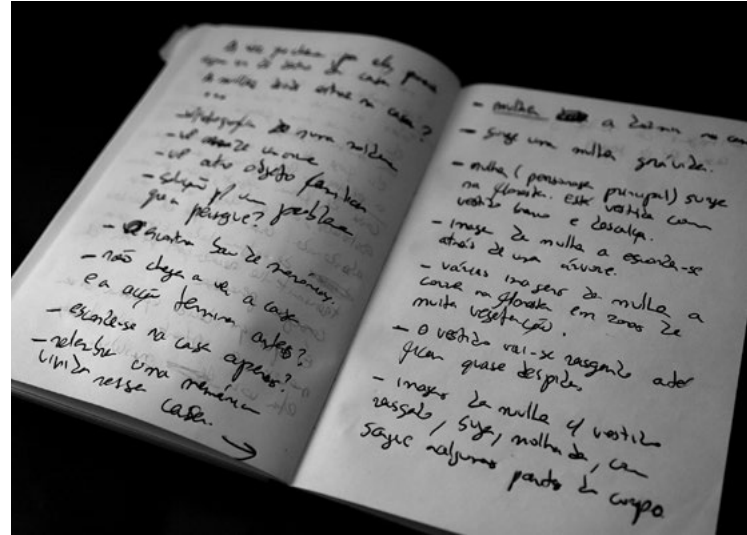 A
dentro da casa
A mulher está na casa?
...
- fotografia numa moldura
- vê um
- vê objeto familiar
- solução p/ um problema
que a persegue?
- encontra baú de memórias.
- não chega a ver a casa
e a acção termina antes?
- esconde-se na casa apenas?
- relembra uma memória
vivida nessa casa.
- mulher a na
- surge uma mulher grávida.
- mulher (personagem principal) surge
na floresta. está vestida com
vestido branco e descalça.
- imagem da mulher a esconder-se
atrás de uma árvore.
- várias imagens da mulher a
correr na floresta em zonas de
muita vegetação.
- o vestido vai-se rasgando até
ficar quase despida.
- imagem da mulher c/ vestido
rasgado, suja, molhada, com
sangue nalgumas partes do corpo